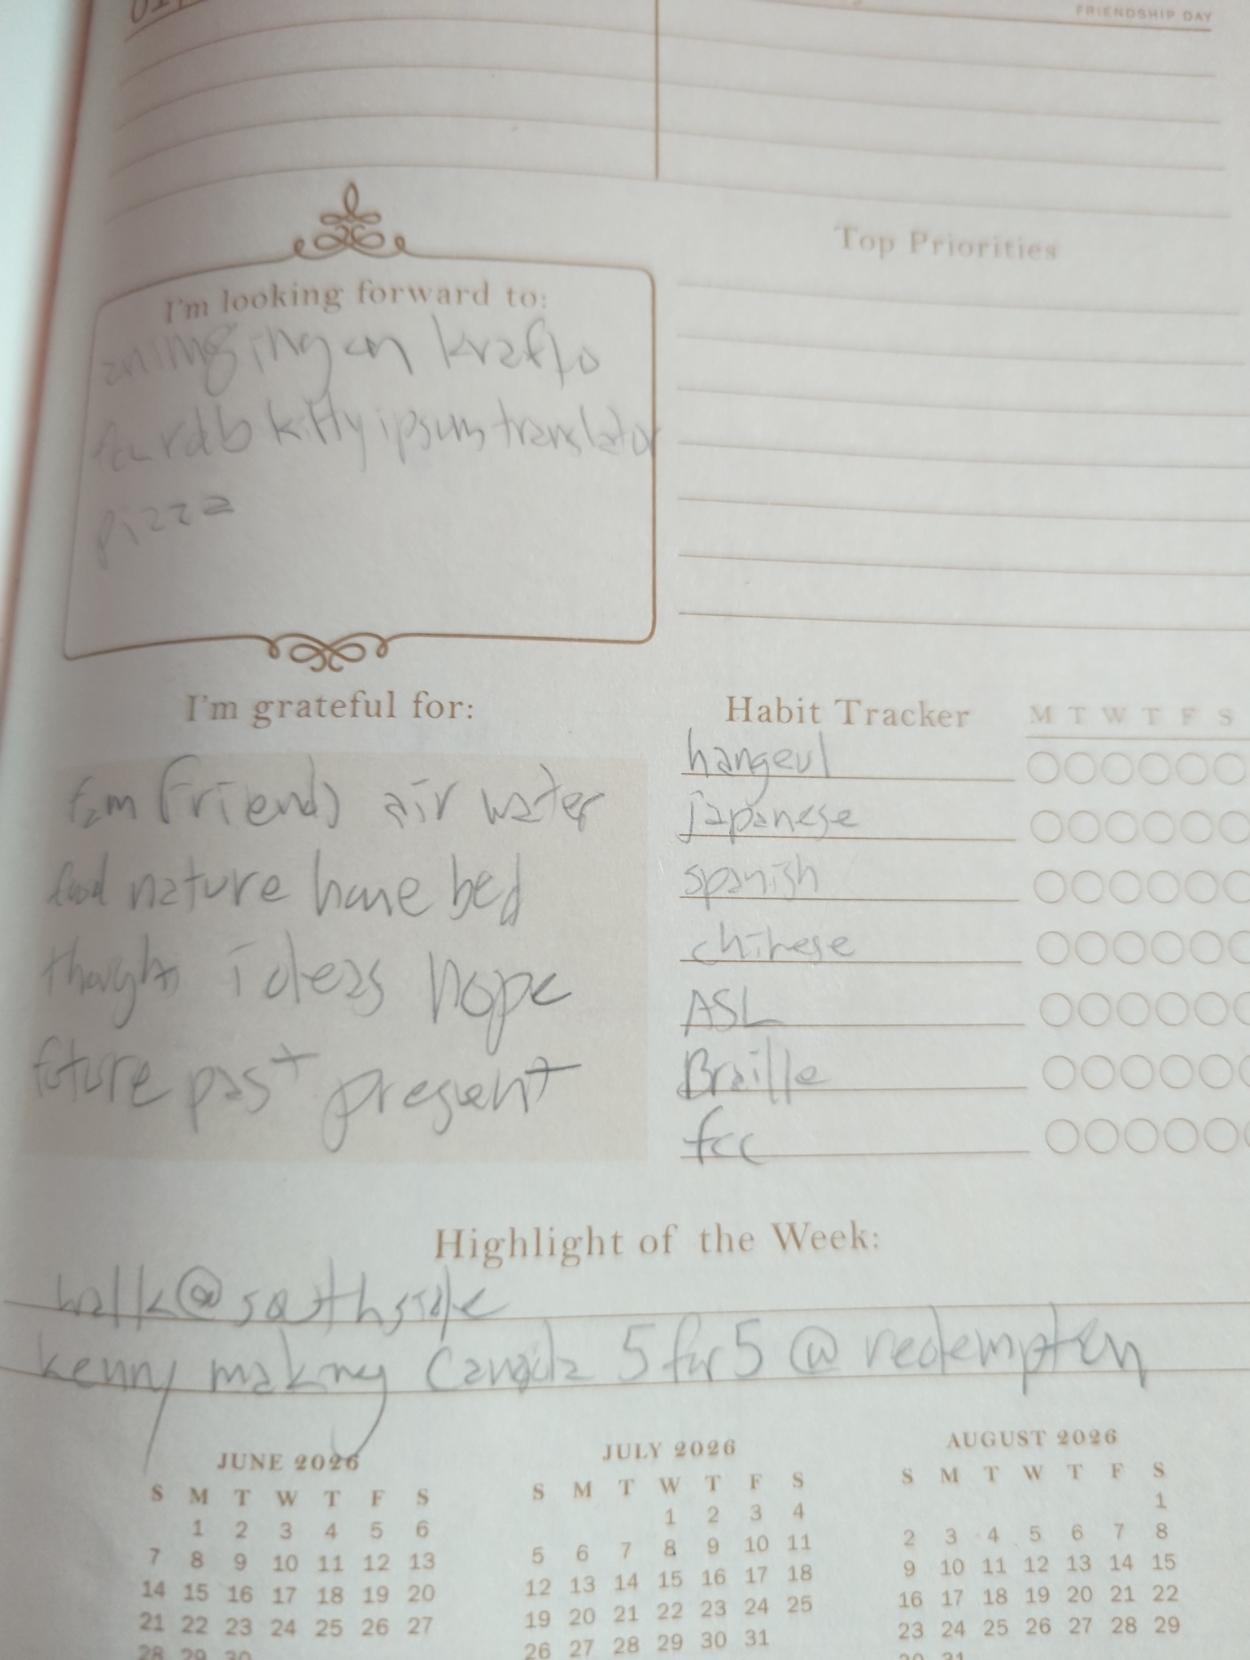 FRIENDSHIP DAY
Top Priorities
I'm looking forward to:
kitty ipsum translator
pizza
I'm grateful for:
fam friends air water
food nature home bed
thoughts ideas hope
future past present
Habit Tracker M T W T F S
hangeul
japanese
spanish
chinese
ASL
Braille
fcc
Highlight of the Week:
walk @ southside
kenny making Canada 5 for 5 @ redemption
JUNE 2026
S M T W T F S
1 2 3 4 5 6
7 8 9 10 11 12 13
14 15 16 17 18 19 20
21 22 23 24 25 26 27
28 29 30
JULY 2026
S M T W T F S
1 2 3 4
5 6 7 8 9 10 11
12 13 14 15 16 17 18
19 20 21 22 23 24 25
26 27 28 29 30 31
AUGUST 2026
S M T W T F S
1
2 3 4 5 6 7 8
9 10 11 12 13 14 15
16 17 18 19 20 21 22
23 24 25 26 27 28 29
30 31